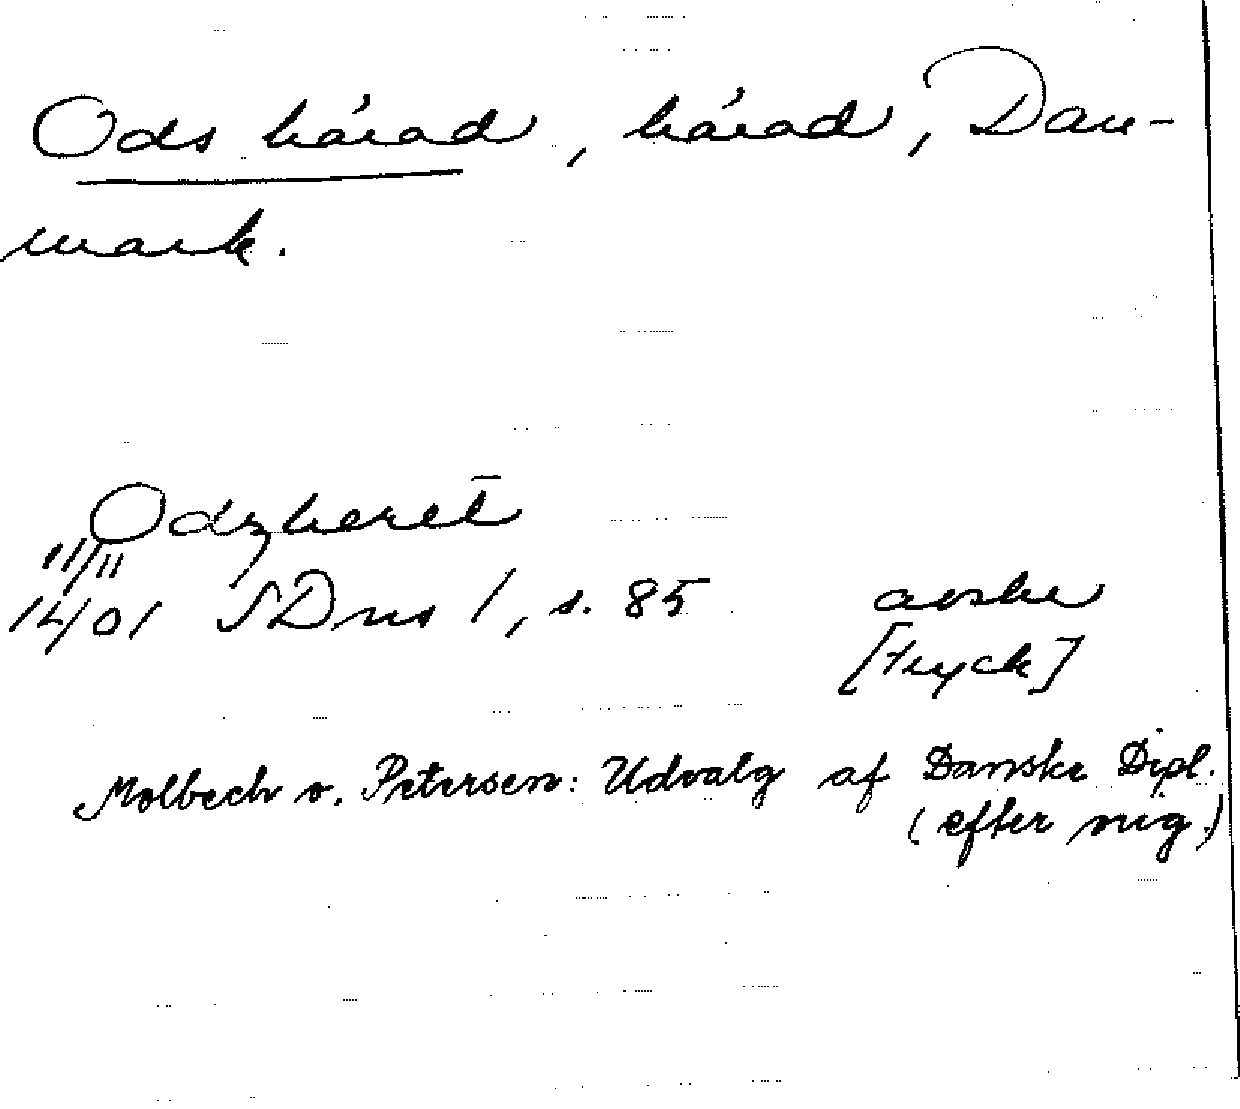 Ods härad, härad, Dan-
mark.
Odzheret̄
11/11
1401 SDns 1, s. 85 avskr
[tryck]
Molbech o. Petersen: Udvalg af Danske Dipl.
(efter orig.)